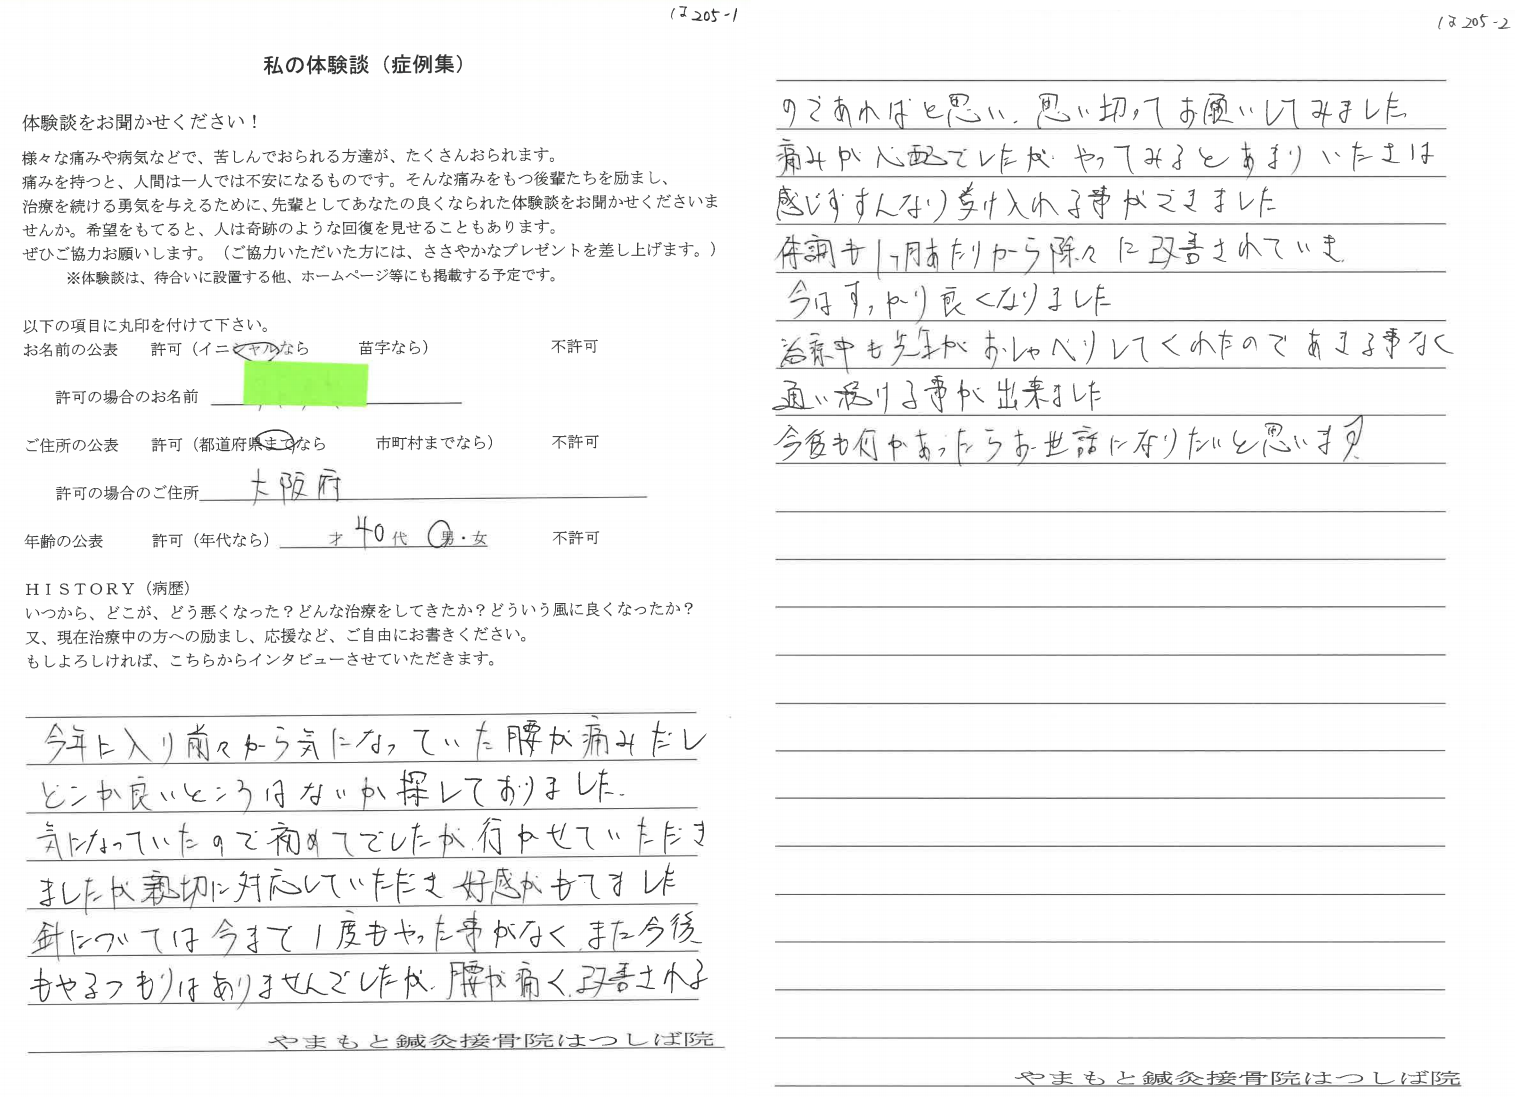 は205-1
私の体験談（症例集）
体験談をお聞かせください！
様々な痛みや病気などで、苦しんでおられる方達が、たくさんおられます。
痛みを持つと、人間は一人では不安になるものです。そんな痛みをもつ後輩たちを励まし、
治療を続ける勇気を与えるために、先輩としてあなたの良くなられた体験談をお聞かせくださいま
せんか。希望をもてると、人は奇跡のような回復を見せることもあります。
ぜひご協力お願いします。（ご協力いただいた方には、ささやかなプレゼントを差し上げます。）
※体験談は、待合いに設置する他、ホームページ等にも掲載する予定です。
以下の項目に丸印を付けて下さい。
お名前の公表　許可（イニシャルなら　苗字なら）　不許可
許可の場合のお名前
ご住所の公表　許可（都道府県までなら　市町村までなら）　不許可
許可の場合のご住所　大阪府
年齢の公表　許可（年代なら）　才　40代　男・女　不許可
ＨＩＳＴＯＲＹ（病歴）
いつから、どこが、どう悪くなった？どんな治療をしてきたか？どういう風に良くなったか？
又、現在治療中の方への励まし、応援など、ご自由にお書きください。
もしよろしければ、こちらからインタビューさせていただきます。
今年に入り前々から気になっていた腰が痛みだし
どこか良いところはないか探しておりました。
気になっていたので初めてでしたが、行かせていただき
ましたが親切に対応していただき 好感がもてました
針については今まで1度もやった事がなく、また今後
もやるつもりはありませんでしたが、腰が痛く、改善される
やまもと鍼灸接骨院はつしば院
は205-2
のであればと思い、思い切ってお願いしてみました
痛みが心配でしたが やってみるとあまりいたさは
感じずすんなり受け入れる事ができました
体調も1ヶ月あたりから除々に改善されていき
今はすっかり良くなりました
治療中も先生がおしゃべりしてくれたのであきる事なく
通い続ける事が出来ました
今後も何かあったらお世話になりたいと思います
やまもと鍼灸接骨院はつしば院